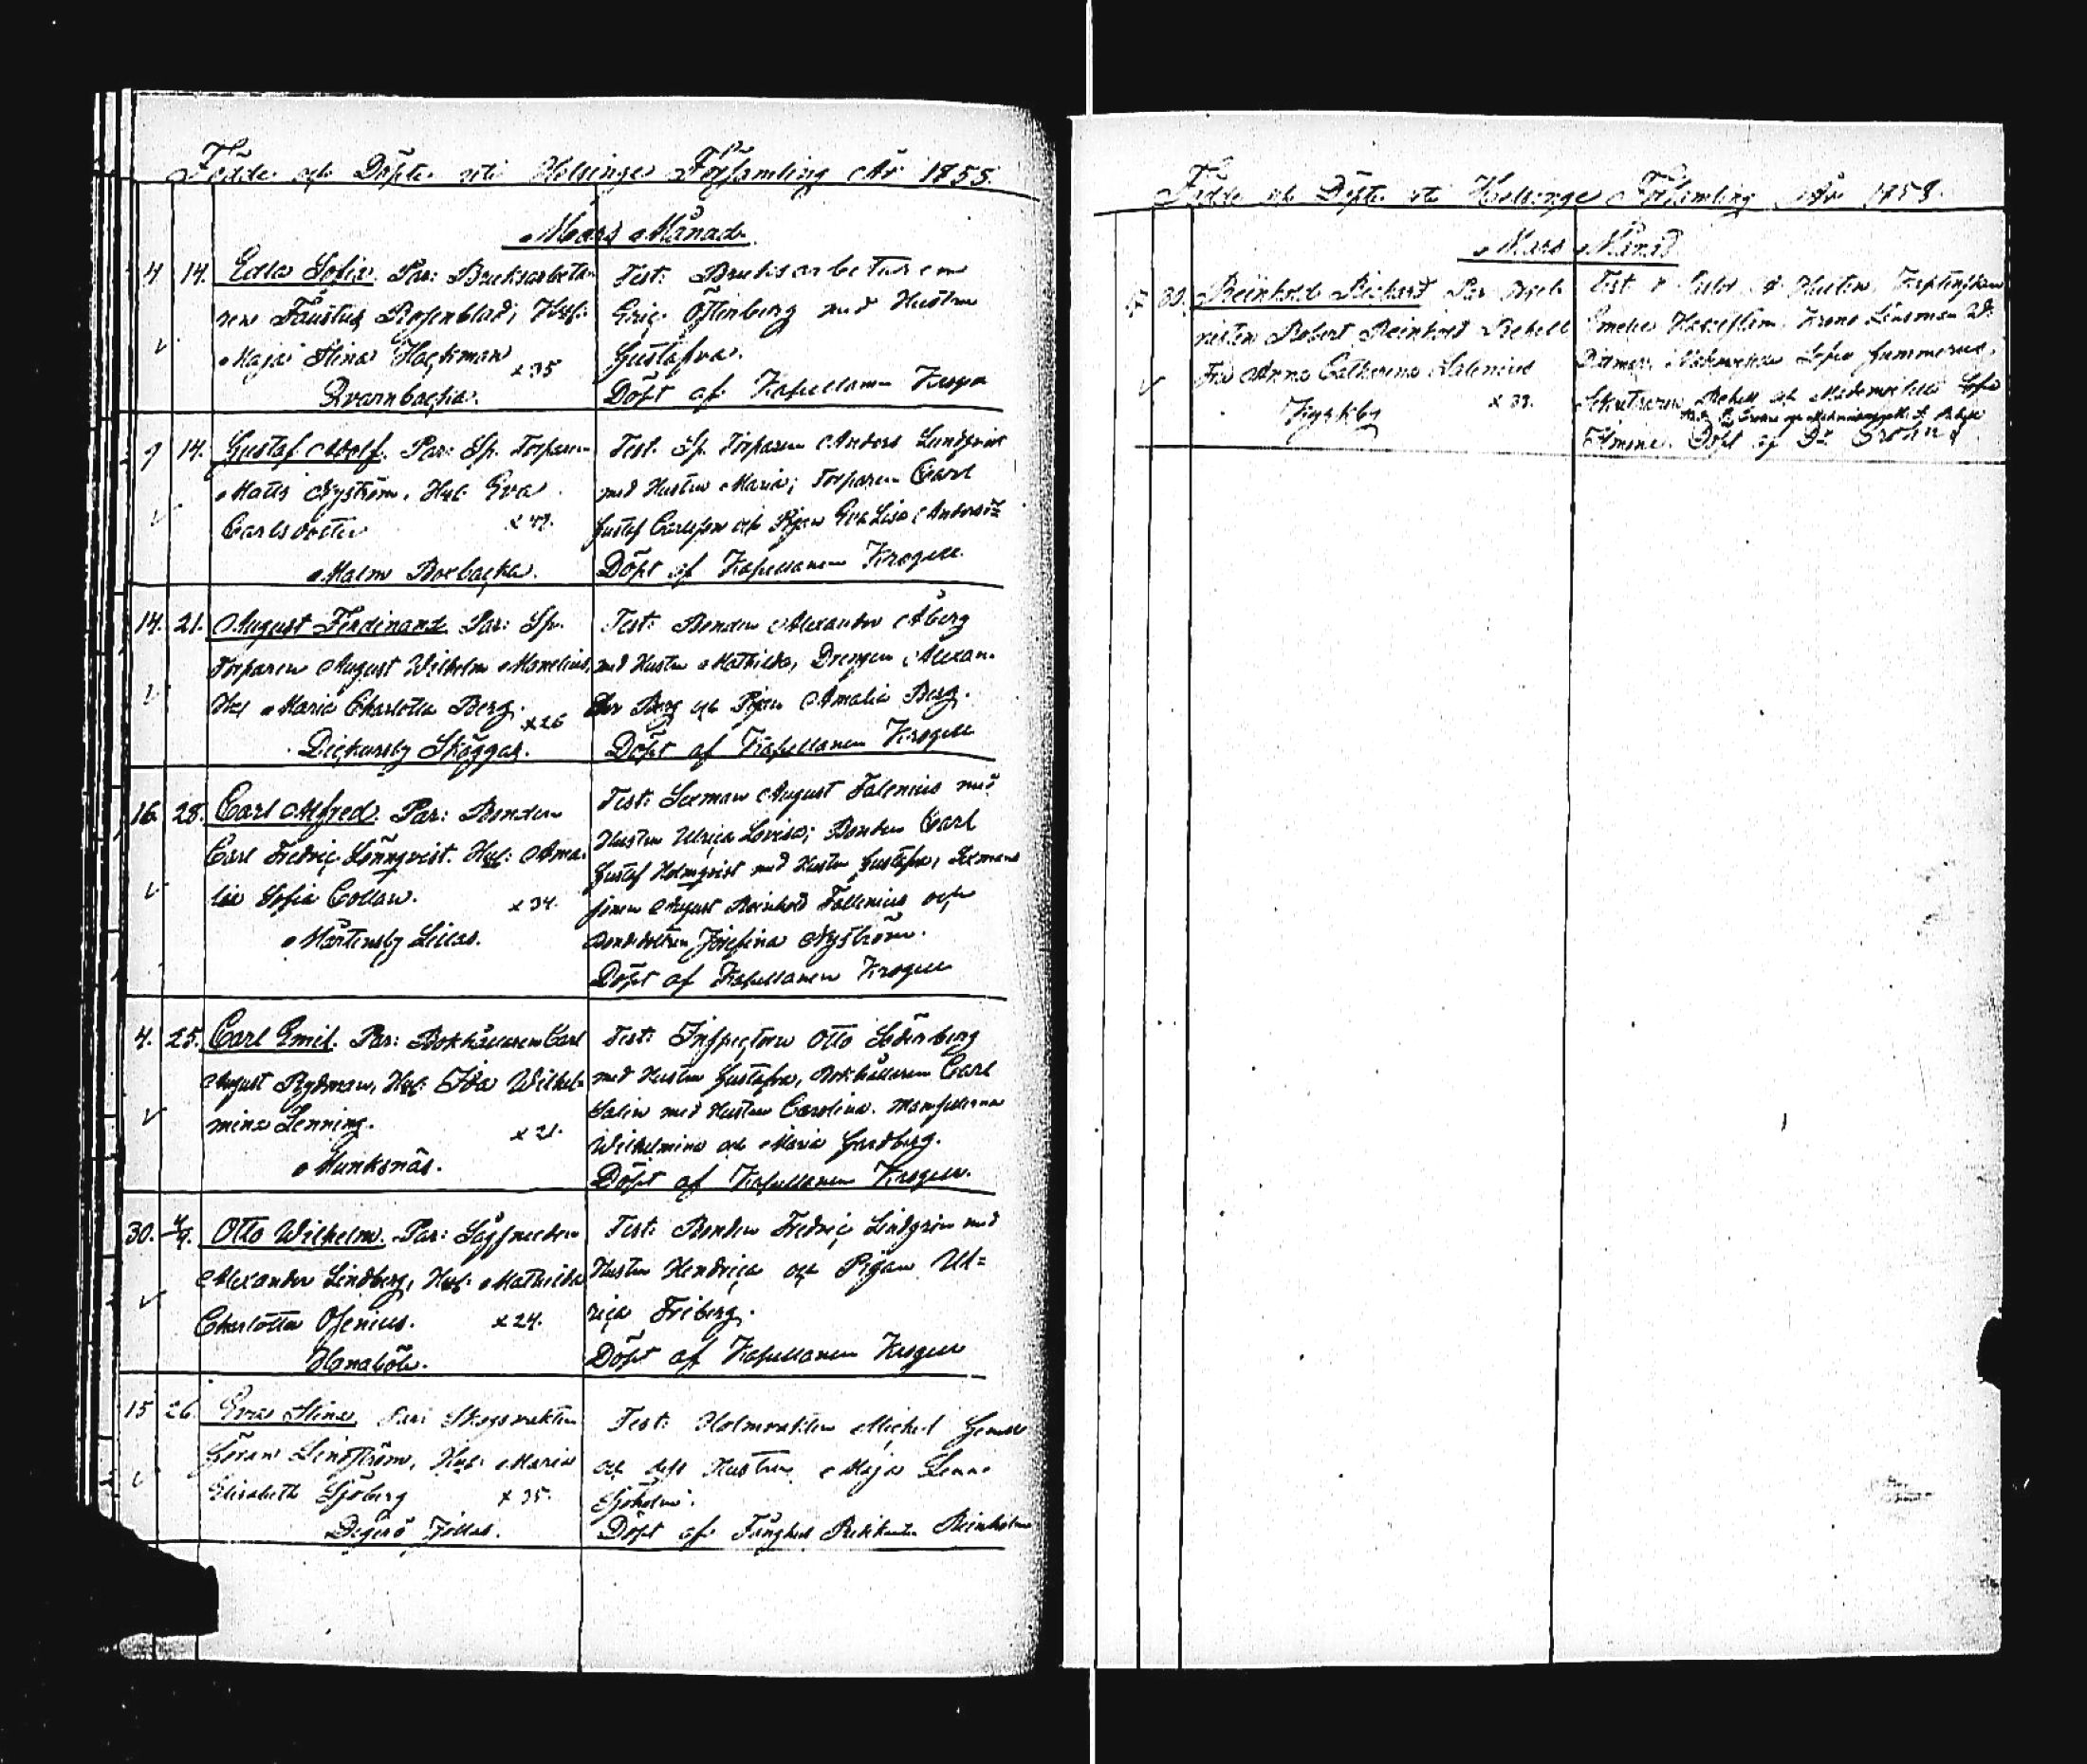 Födde och Döpte uti Helsinge Församling År 1855.
Mars Månad.
4 14. Edla Sofia. Par: Bruksarbeta-
ren Faustus Rosenblad; Hust:
Maja Stina Hackman x 35
Qvarnbacka.
Test: Bruksarbetaren
Eric Österberg med Hustru
Gustafva.
Döpt af Kapellanen Krogell
9 14. Gustaf Adolf. Par: Sp. Torparen
Matts Nyström, Hust: Eva
Carlsdotter
Malm Boxbacka.
Test. Sp. Torparen Anders Lundqvist
med Hustru Maria; Torparen Carl
Gustaf Carlsson och Pigan Eva Lisa Andersd:
Döpt af Kapellanen Krogell
14. 21. August Ferdinand. Par: Sp.
Torparen August Wilhelm Manelius,
Hust Maria Charlotta Berg. x 26
Dickursby Skäggas.
Test: Bonden Alexander Åberg
med Hustru Mathilda, Drengen Alexan-
der Berg och Pigan Amalia Berg.
Döpt af Kapellanen Krogell
16. 28. Carl Alfred. Par: Bonden
Carl Fredric Lönnqvist. Hust: Ama-
lia Sofia Collan. x 34.
Mårtensby Lillas.
Test: Sexman August Falenius med
Hustru Ulrica Lovisa; Bonden Carl
Gustaf Holmqvist med Hustru Gustafva, Sexmans
sonen August Reinhold Fallenius och
Bondedottren Josefina Nyström.
Döpt af Kapellanen Krogell
4. 25. Carl Emil. Par: Bokhållaren Carl
August Rydman, Hust: Ida Wilhel-
mina Lenning. x 21.
Munksnäs.
Test: Inspectoren Otto Söderberg
med Hustru Gustafva, Bokhållaren Carl
Salin med Hustru Carolina. Mamsellerna
Wilhelmina och Maria Gardberg.
Döpt af Kapellanen Krogell.
30. 4/9. Otto Wilhelm. Par: Sågsmeden
Alexander Lindberg, Hust: Mathilda
Charlotta Osenius. x 24.
Hanaböle.
Test: Bonden Fredric Lindgren med
Hustru Hendrica och Pigan Ul=
rica Friberg.
Döpt af Kapellanen Krogell
15 26. Eva Stina Par: Skogsvakten
Göran Lindström, Hust: Maria
Elisabeth Sjöberg x 35.
Degerö Jollas.
Test: Holmvakten Michel
och dess Hustru Maja Lena
Sjöholm.
Döpt af Fånghus Predikanten Reinholm
Födde och Döpte uti Helsinge Församling År 1858.
Mars Månad
Reinhold Richard Par:
Robert Reinhold Rehell
Fru Anna Catharina Salenius x 33.
Kyrkby
Test:
Sofia Gummerus,
Rehell och Mademoiselle Sofia
Döpt af